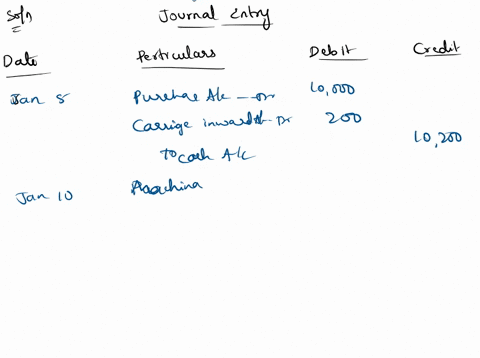 Soln
Journal Entry
Date Perticulars Debit Credit
Jan 5 Purchase A/c — Dr 10,000
Carrige inward Dr 200
To cash A/c 10,200
Jan 10 Machina